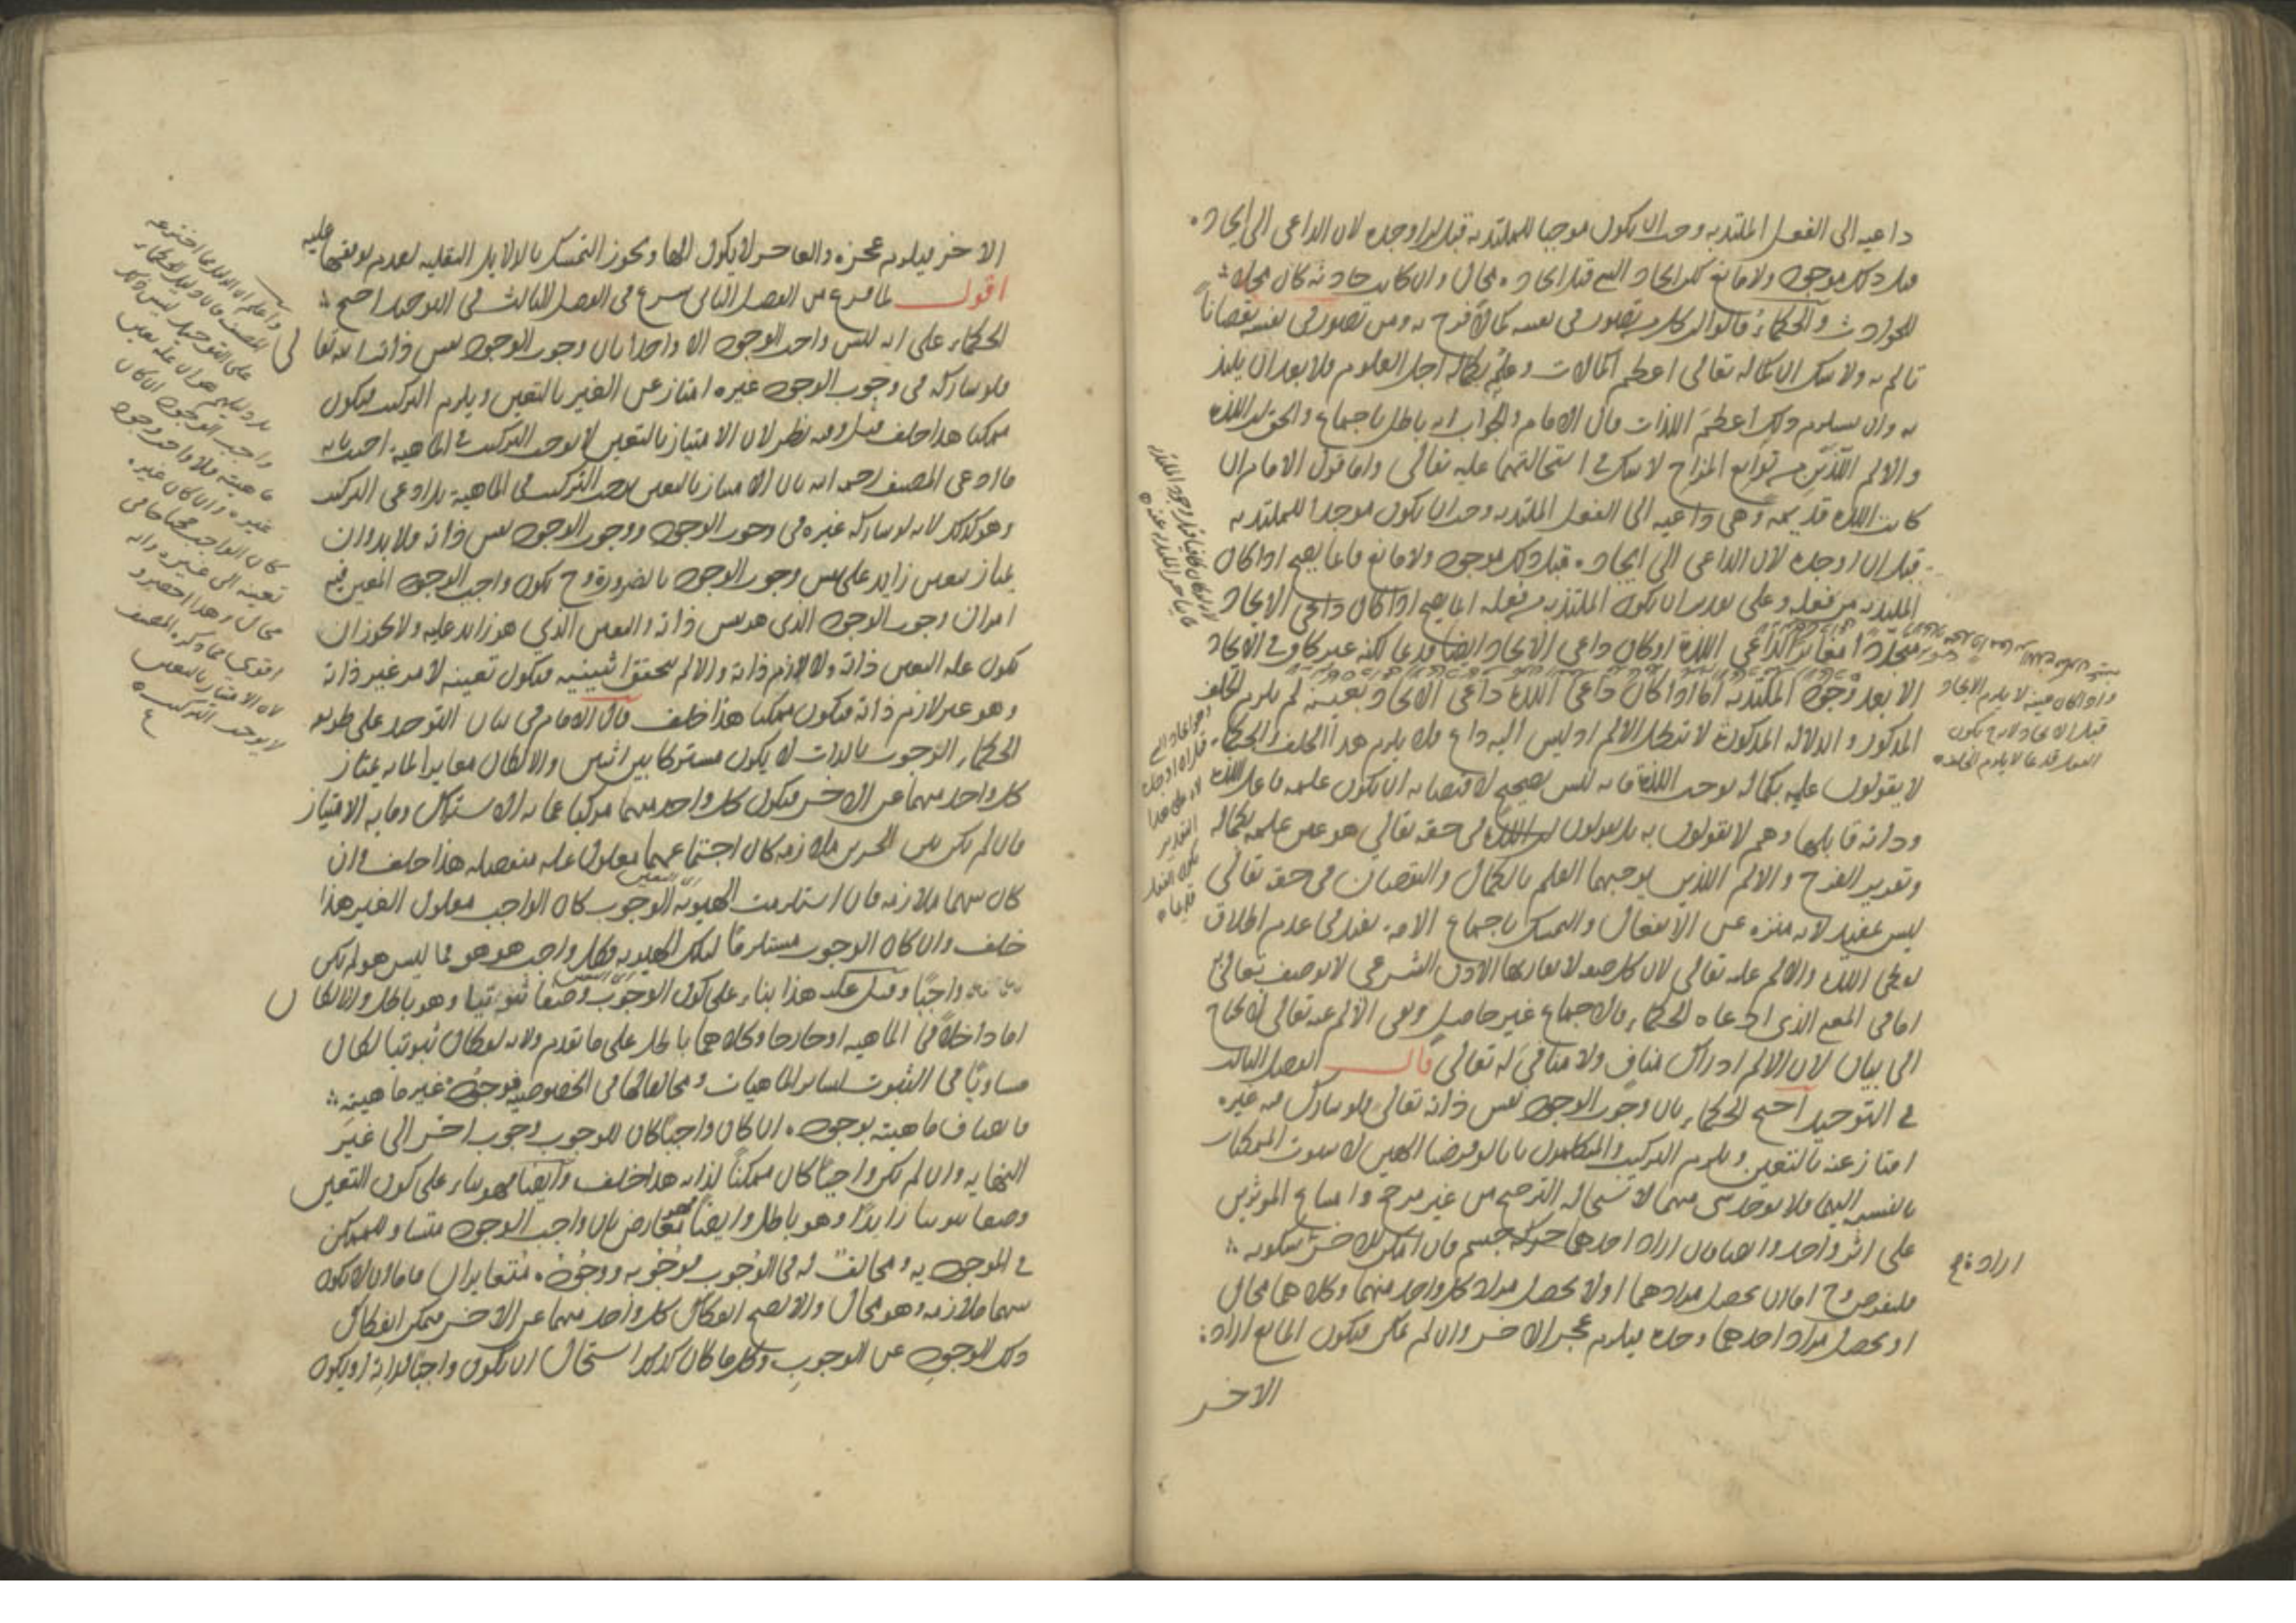 داعيه الى الفعل الملتذ به وجب ان يكون موجبا للملتذ به قبل ان اوجده لان الداعى الى ايجاده
قبل ذلك موجود ولا مانع لكن ايجاد الشي قبل ايجاده محال وان كانت حادثه كان محلا
للحوادث والحكماء قالوا ان كل من تصور فى نفسه كمالا فرح به ومن تصور فى نفسه نقصانا
تالم به ولا شك ان كماله تعالى اعظم الكمالات وعلمه بكماله اجل العلوم فلا بعد ان يلتذ
به وان يستلزم ذلك اعظم اللذات قال الامام والجواب انه باطل باجماع والحق ان اللذه
والالم اللذين من توابع المزاج لا شك فى استحالتهما عليه تعالى واما قول الامام ان
كانت اللذه قديمه وهى داعيه الى الفعل الملتذ به وجب ان يكون موجدا للملتذ به
قبل ان اوجده لان الداعى الى ايجاده قبل ذلك موجود ولا مانع فانما يصح اذا كان
الملتذ به من فعله وعلى تقدير ان يكون الملتذ به من فعله انما يصح اذا كان داعى الايجاد
متجددا مغايرا لداعى اللذه او كان داعى الايجاد ايضا قديما لكنه غير كاف فى الايجاد
الا بعد وجود الملتذ به اما اذا كان داعى اللذه داعى الايجاد بعينه لم يلزم الخلف
المذكور والدلاله المذكوره لا تبطل الالم اذ ليس اليه داع فلا يلزم هذا الخلف والحكماء
لا يقولون علمه بكماله يوجب اللذه فانه ليس بصحيح لاقتضائه ان يكون علمه فاعل اللذه
وذاته قابلها وهم لا يقولون به بل يقولون اللذه فى حقه تعالى هو عين علمه بكماله
وتقدير الفرح والالم اللذين يوجبهما العلم بالكمال والنقصان فى حقه تعالى
ليس بمفيد لانه منزه عن الانفعال والتمسك باجماع الامه يفيد فى عدم اطلاق
لفظى اللذه والالم عليه تعالى لان كل صفه لا يقارنها الاذن الشرعى لا يوصف تعالى بها
اما فى المعنى الذى ادعاه الحكماء فالاجماع غير حاصل ونفى الالم عنه تعالى لا يحتاج
الى بيان لان الالم ادراك مناف ولا منافى له تعالى قال الفصل الثالث
فى التوحيد احتج الحكماء بان وجوب الوجود نفس ذاته تعالى فلو شارك فيه غيره
امتاز عنه بالتعين ويلزم التركيب والمتكلمون بانا لو فرضنا الهين لاستوت الممكنات
بالنسبه اليهما فلا يوجد شى منهما لاستحاله الترجيح من غير مرجح وامتناع الموثرين
على اثر واحد وايضا فان اراد احدهما حركه جسم فان امكن للاخر سكونه
فليفرض وح اما ان يحصل مرادهما او لا يحصل مراد كل واحد منهما وكلاهما محال
او يحصل مراد احدهما وحده فيلزم عجز الاخر وان لم يمكن فيكون المانع اراده
الاخر
اراده
واذا كان عينه لا يلزم الايجاد
قبل الايجاد لانه ح يكون
الفعل قديما لا يلزم الخلف
الاخر فيلزم عجزه والعاجز لا يكون الها ويجوز التمسك بالدلايل النقليه لعدم توقفها عليه
اقول لما فرغ من الفصل الثانى شرع فى الفصل الثالث فى التوحيد احتج
الحكماء على انه ليس واجب الوجود الا واحدا بان وجوب الوجود نفس ذات الله تعالى
فلو شاركه فى وجوب الوجود غيره امتاز عن الغير بالتعين ويلزم التركيب فيكون
ممكنا هذا خلف قيل وفيه نظر لان الامتياز بالتعين لا يوجب التركيب فى الماهيه اجيب بانه
ما ادعى المصنف رحمه الله بان الامتياز بالتعين يوجب التركيب فى الماهيه بل ادعى التركيب
وهو كذلك لانه لو شاركه غيره فى وجوب الوجود ووجوب الوجود نفس ذاته ولا بد وان
يمتاز بتعين زايد على نفس وجوب الوجود بالضروره وح يكون واجب الوجود المعين فيه
امران وجوب الوجود الذى هو نفس ذاته والتعين الذى هو زايد عليه ولا يجوز ان
يكون عله التعين ذاته ولا لازم ذاته والا لم يتحقق اثنينيه فيكون تعينه لامر غير ذاته
وهو غير لازم ذاته فيكون ممكنا هذا خلف قال الامام فى بيان التوحيد على طريقه
الحكماء الوجوب بالذات لا يكون مشتركا بين اثنين والا لكان مغايرا لما به يمتاز
كل واحد منهما عن الاخر فيكون كل واحد منهما مركبا عما به الاشتراك وما به الامتياز
فان لم يكن بين الجزين ملازمه كان اجتماعهما معلول عله منفصله هذا خلف وان
كان بينهما ملازمه فان استلزمت الهويه الوجوب كان الواجب معلول الغير هذا
خلف وان كان الوجوب مستلزما لتلك الهويه فكل واجب هو هو فما ليس هو لم يكن
واجبا وقيل عليه هذا بناء على كون الوجوب وصفا ثبوتيا وهو باطل والا لكان
اما داخلا فى الماهيه او خارجا وكلاهما باطل على ما تقدم ولانه لو كان ثبوتيا لكان
مساويا فى الثبوت لساير الماهيات ومخالفا لها فى الخصوصيه فوجوده غير ماهيته
فاتصاف ماهيته بوجوده ان كان واجبا كان للوجوب وجوب اخر الى غير
النهايه وان لم يكن واجبا كان ممكنا لذاته هذا خلف وايضا فهو بناء على كون التعين
وصفا ثبوتيا زايدا وهو باطل وايضا فهو معارض بان واجب الوجود متساو للممكن
فى الموجوديه ومخالف له فى الوجوب فوجوبه ووجوده متغايران فاما ان لا يكون
بينهما ملازمه وهو محال والا لصح انفكاك كل واحد منهما عن الاخر فيمكن انفكاك
ذلك الوجود عن الوجوب وكل ما كان كذلك استحال ان يكون واجبا لذاته او يكون
واعلم ان الدليل ما اخترعه
المصنف فان دليل الحكماء
على التوحيد ليس ذلك
بل دليلهم هو ان عله تعين
واجب الوجود ان كان
ماهيته فلا واجب وجود
غيره وان كان غيره
كان الواجب محتاجا فى
تعينه الى غيره وانه
محال وهذا اخصر و
اقوى مما ذكره المصنف
لان الامتياز بالتعين
لا يوجب التركيب